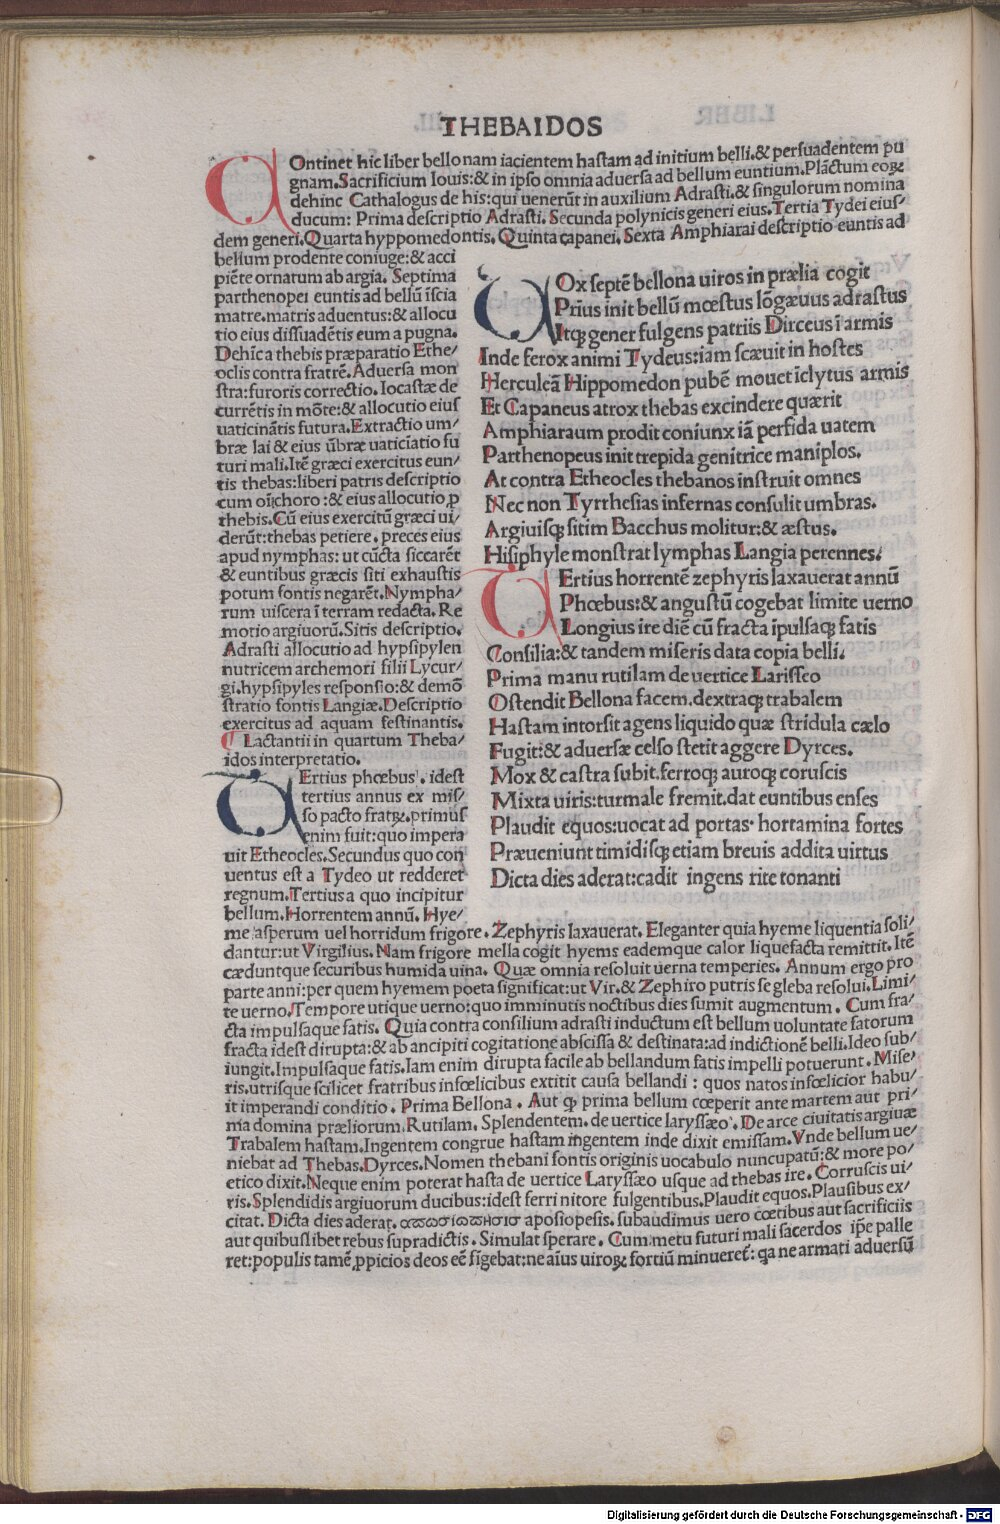 THEBAIDOS
COntinet hic liber bellonam iacientem hastam ad initium belli.& persuadentem pu
gnam.Sacrificium Iouis:& in ipso omnia aduersa ad bellum euntium.Plāctum eoꝝ
dehinc Cathalogus de his:qui uenerūt in auxilium Adrasti.& singulorum nomina
ducum: Prima descriptio Adrasti. Secunda polynicis generi eius.Tertia Tydei eius-
dem generi.Quarta hyppomedontis. Quinta capanei. Sexta Amphiarai descriptio euntis ad
bellum prodente coniuge:& acci
piēte ornatum ab argia. Septima
parthenopei euntis ad bellū īscia
matre.matris aduentus:& allocu
tio eius dissuadētis eum a pugna.
Dehīc a thebis præparatio Ethe/
oclis contra fratrē.Aduersa mon
stra:furoris correctio.Iocastæ de
currētis in mōte:& allocutio eius
uaticinātis futura.Extractio um/
bræ lai & eius ūbræ uaticiatio fu
turi mali.Itē græci exercitus eun/
tis thebas:liberi patris descriptio
cum oīi choro:& eius allocutio ꝓ
thebis.Cū eius exercitū græci ui/
derūt:thebas petiere.preces eius
apud nymphas:ut cūcta siccarēt
& euntibus græcis siti exhaustis
potum fontis negarēt.Nympha/
rum uiscera ī terram redacta. Re
motio argiuorū.Sitis descriptio.
Adrasti allocutio ad hypsipylen
nutricem archemori filii Lycur/
gi.hypsipyles responsio:& demō
stratio fontis Langiæ.Descriptio
exercitus ad aquam festinantis.
C Lactantii in quartum Theba/
idos interpretatio.
TErtius phœbus. idest
tertius annus ex mis/
so pacto fratꝝ.primus
enim fuit:quo impera
uit Etheocles.Secundus quo con
uentus est a Tydeo ut redderet
regnum.Tertius a quo incipitur
bellum.Horrentem annū. Hye/
me asperum uel horridum frigore. Zephyris laxauerat. Eleganter quia hyeme liquentia soli/
dantur:ut Virgilius. Nam frigore mella cogit hyems eademque calor liquefacta remittit. Itē
cæduntque securibus humida uina. Quæ omnia resoluit uerna temperies. Annum ergo pro
parte anni:per quem hyemem poeta significat:ut Vir.& Zephiro putris se gleba resolui.Limi/
te uerno.Tempore utique uerno:quo imminutis noctibus dies sumit augmentum. Cum fra/
cta impulsaque fatis. Quia contra consilium adrasti inductum est bellum uoluntate fatorum
fracta idest dirupta:& ab ancipiti cogitatione abscissa & destinata:ad indictionē belli.Ideo sub/
iungit.Impulsaque fatis.Iam enim dirupta facile ab bellandum fatis impelli potuerunt. Mise/
ris.utrisque scilicet fratribus infœlicibus extitit causa bellandi: quos natos infœlicior habu/
it imperandi conditio. Prima Bellona. Aut ꝙ prima bellum cœperit ante martem aut pri/
ma domina præliorum. Rutilam. Splendentem. de uertice laryssæo. De arce ciuitatis argiuæ
Trabalem hastam.Ingentem congrue hastam ingentem inde dixit emissam.Vnde bellum ue/
niebat ad Thebas.Dyrces.Nomen thebani fontis originis uocabulo nuncupatū:& more po/
etico dixit.Neque enim poterat hasta de uertice Laryssæo usque ad thebas ire. Corruscis ui/
ris.Splendidis argiuorum ducibus:idest ferri nitore fulgentibus.Plaudit equos.Plausibus ex/
citat. Dicta dies aderat. aposiopesis. subaudimus uero cœtibus aut sacrificiis
aut quibuslibet rebus supradictis. Simulat sperare. Cum metu futuri mali sacerdos ip̄e palle
ret:populis tamē ꝓpicios deos eē fīgebat:ne aīus uiroꝝ fortiū minueret: ꝗa ne armati aduersū
MOx septē bellona uiros in prælia cogit
Prius init bellū mœstus lōgæuus adrastus
Itqꝫ gener fulgens patriis Dirceus ī armis
Inde ferox animi Tydeus:iam scæuit in hostes
Herculeā Hippomedon pubē mouet īclytus armis
Et Capaneus atrox thebas excindere quærit
Amphiaraum prodit coniunx iā perfida uatem
Parthenopeus init trepida genitrice maniplos.
At contra Etheocles thebanos instruit omnes
Nec non Tyrrhesias infernas consulit umbras.
Argiuisqꝫ sitim Bacchus molitur:& æstus.
Hisiphyle monstrat lymphas Langia perennes.
TErtius horrentē zephyris laxauerat annū
Phœbus:& angustū cogebat limite uerno
Longius ire diē cū fracta īpulsaqꝫ fatis
Consilia:& tandem miseris data copia belli.
Prima manu rutilam de uertice Larisseo
Ostendit Bellona facem.dextraqꝫ trabalem
Hastam intorsit agens liquido quæ stridula cælo
Fugit:& aduersæ celso stetit aggere Dyrces.
Mox & castra subit.ferroqꝫ auroqꝫ coruscis
Mixta uiris:turmale fremit.dat euntibus enses
Plaudit equos:uocat ad portas. hortamina fortes
Præueniunt timidisqꝫ etiam breuis addita uirtus
Dicta dies aderat:cadit ingens rite tonanti
Digitalisierung gefördert durch die Deutsche Forschungsgemeinschaft - DFG